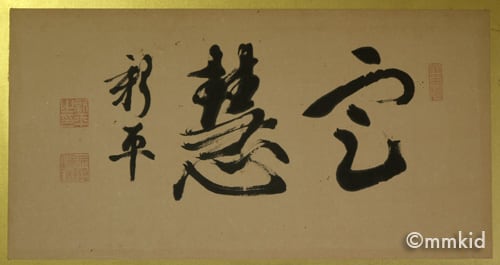 定慧
新平
©mmkid